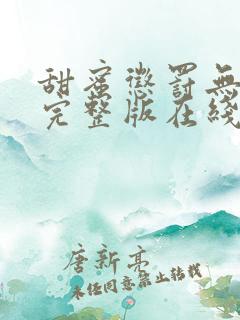 甜蜜懲罰無
完整版在綫
唐新亮
未经同意禁止转载